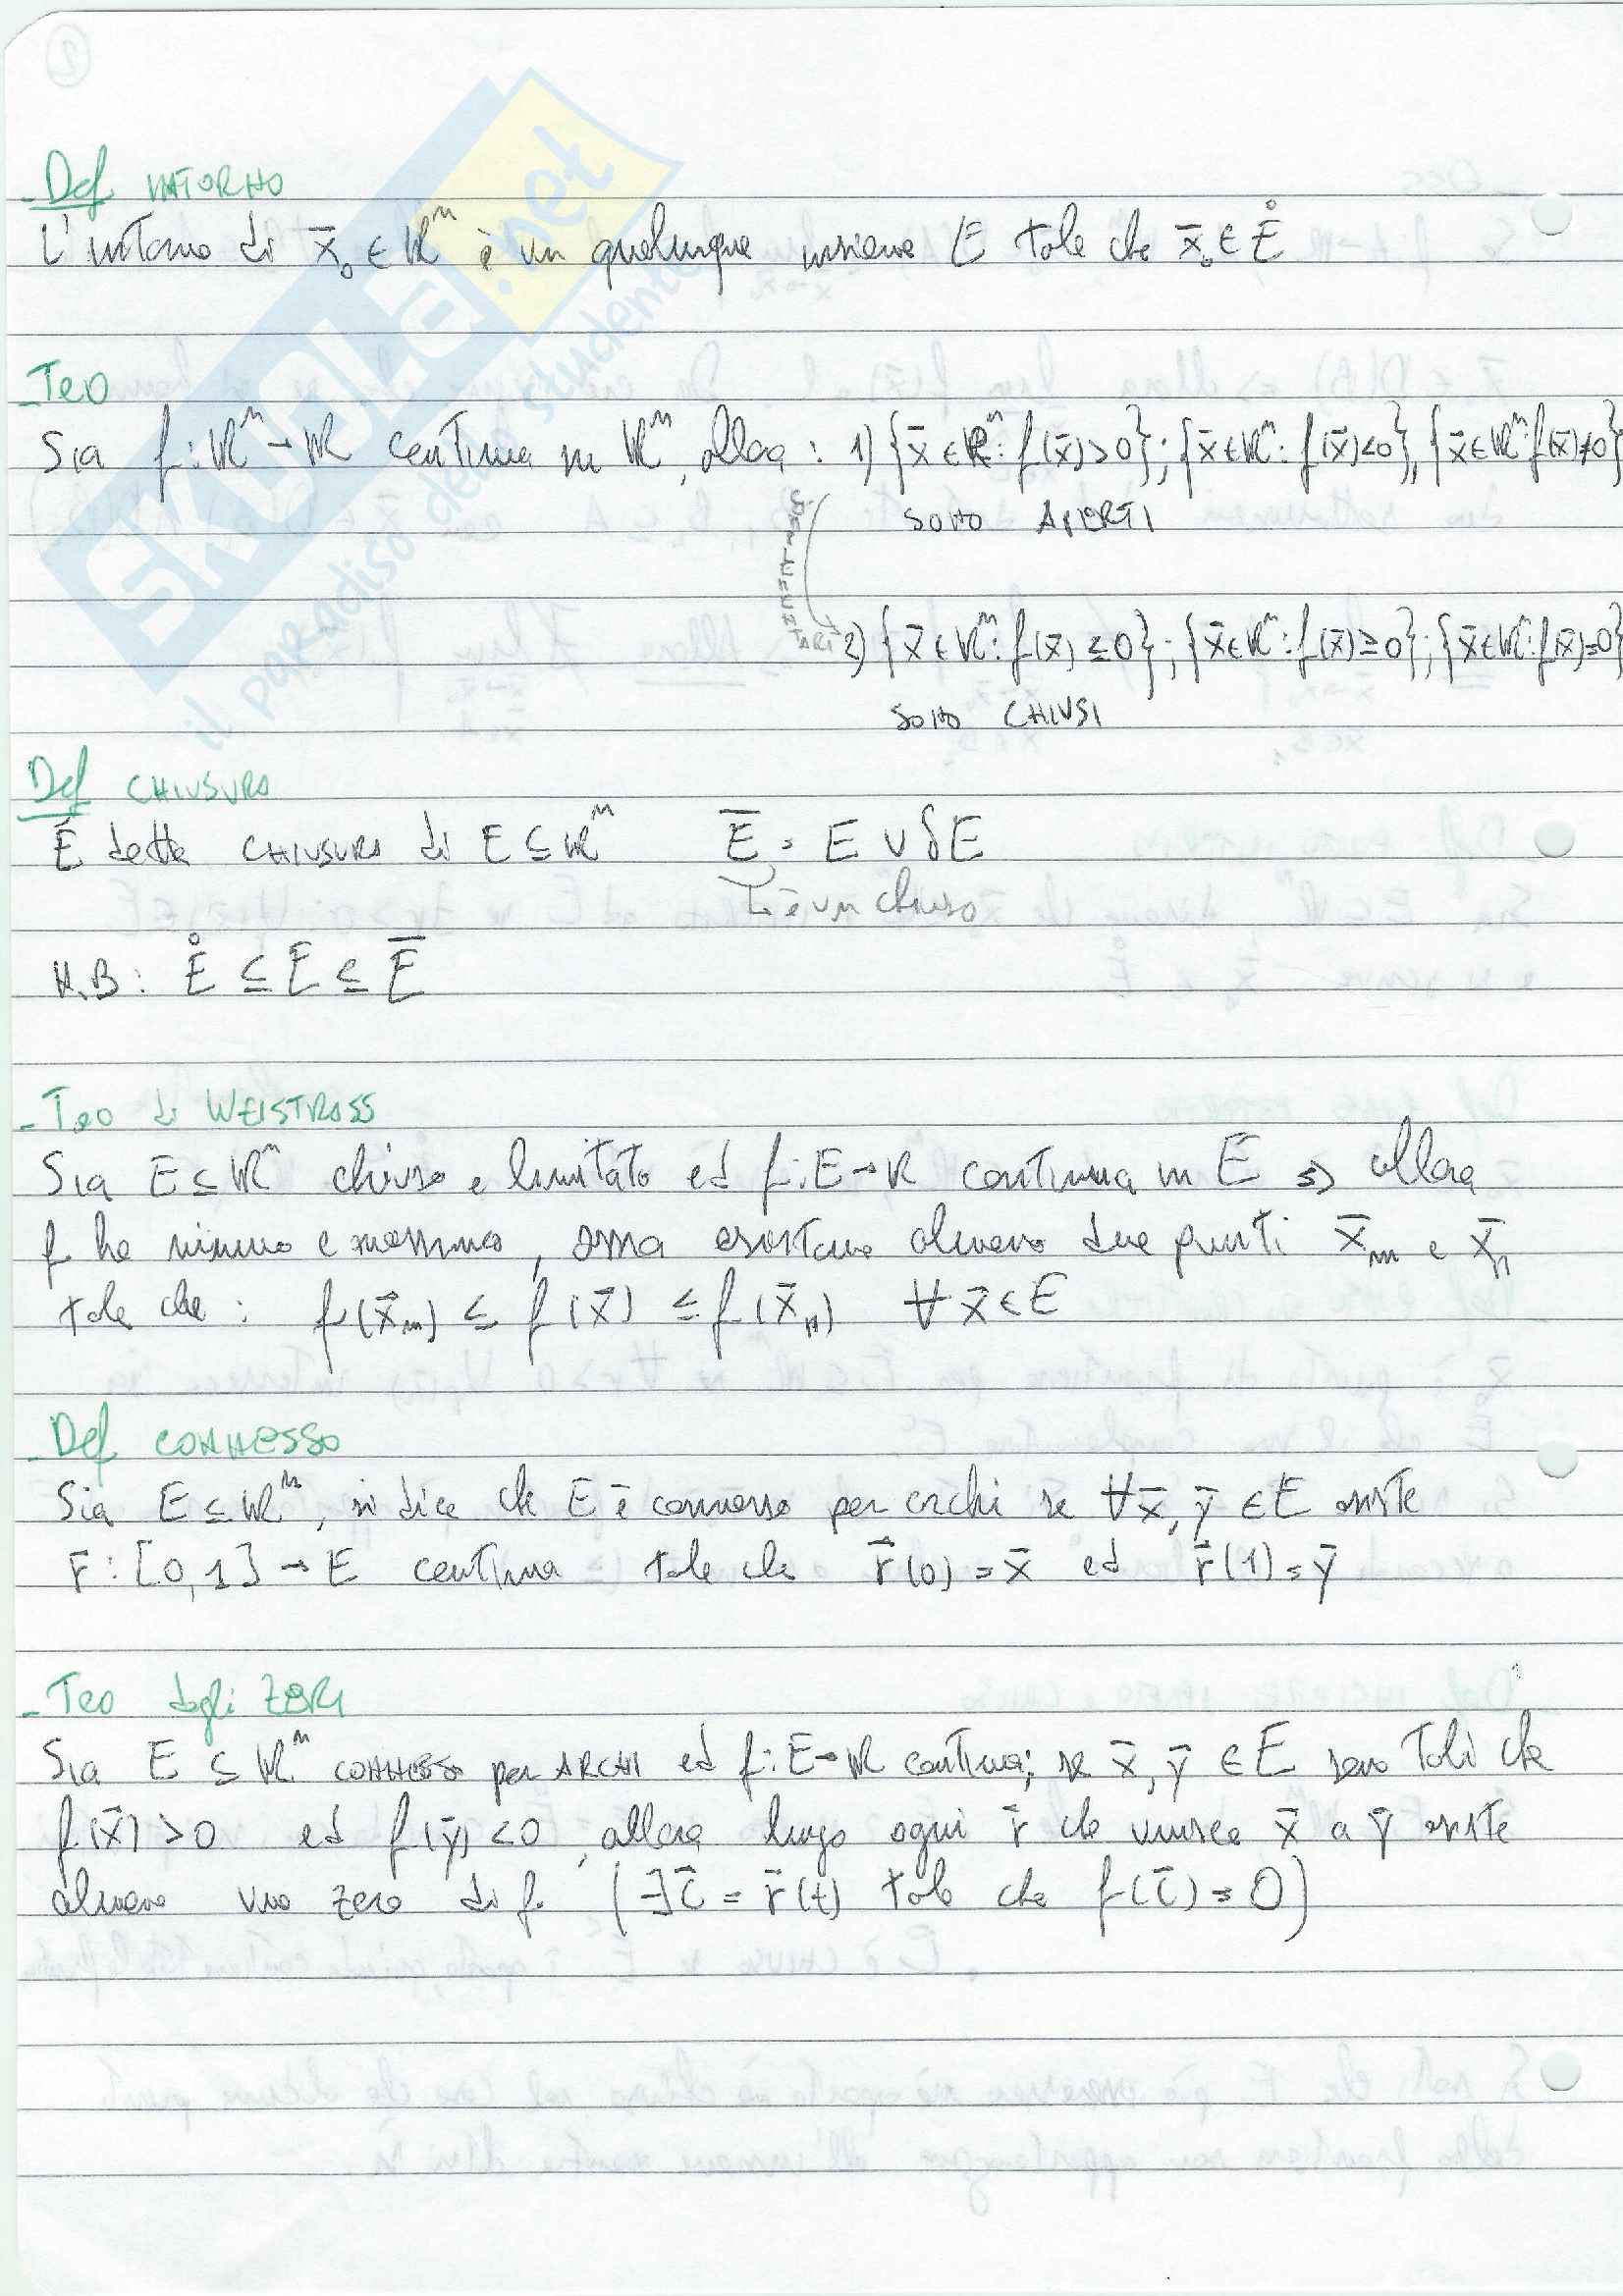 - Def INTORNO
L'intorno di x̄₀ ∈ ℝⁿ è un qualunque insieme E tale che x̄₀ ∈ E̊
- Teo
Sia f: ℝⁿ → ℝ continua in ℝⁿ, allora : 1) {x̄ ∈ ℝⁿ: f(x̄)>0}; {x̄ ∈ ℝⁿ: f(x̄)<0}, {x̄ ∈ ℝⁿ: f(x̄)≠0}
SONO APERTI
2) {x̄ ∈ ℝⁿ: f(x̄) ≤ 0}; {x̄ ∈ ℝⁿ: f(x̄) ≥ 0}; {x̄ ∈ ℝⁿ: f(x̄)=0}
SONO CHIUSI
Def CHIUSURA
È detta CHIUSURA di E ⊆ ℝⁿ Ē = E ∪ δE
↳ è un chiuso
N.B: E̊ ⊆ E ⊆ Ē
- Teo di WEISTRASS
Sia E ⊆ ℝⁿ chiuso e limitato ed f: E → ℝ continua in E ⇒ allora
f ha minimo e massimo, ossia esistono almeno due punti x̄ₘ e x̄_M
tale che : f(x̄ₘ) ≤ f(x̄) ≤ f(x̄_M) ∀ x̄ ∈ E
- Def CONNESSO
Sia E ⊆ ℝⁿ, si dice che E è connesso per archi se ∀ x̄, ȳ ∈ E esiste
r̄ : [0,1] → E continua tale che r̄(0) = x̄ ed r̄(1) = ȳ
- Teo degli ZERI
Sia E ⊆ ℝⁿ CONNESSO per ARCHI ed f: E → ℝ continua; se x̄, ȳ ∈ E sono Tali che
f(x̄) > 0 ed f(ȳ) < 0, allora lungo ogni r̄ che unisce x̄ a ȳ esiste
almeno uno zero di f. (∃ c̄ = r̄(t) tale che f(c̄) = 0)
SKUOLA.net
il paradiso dello studente